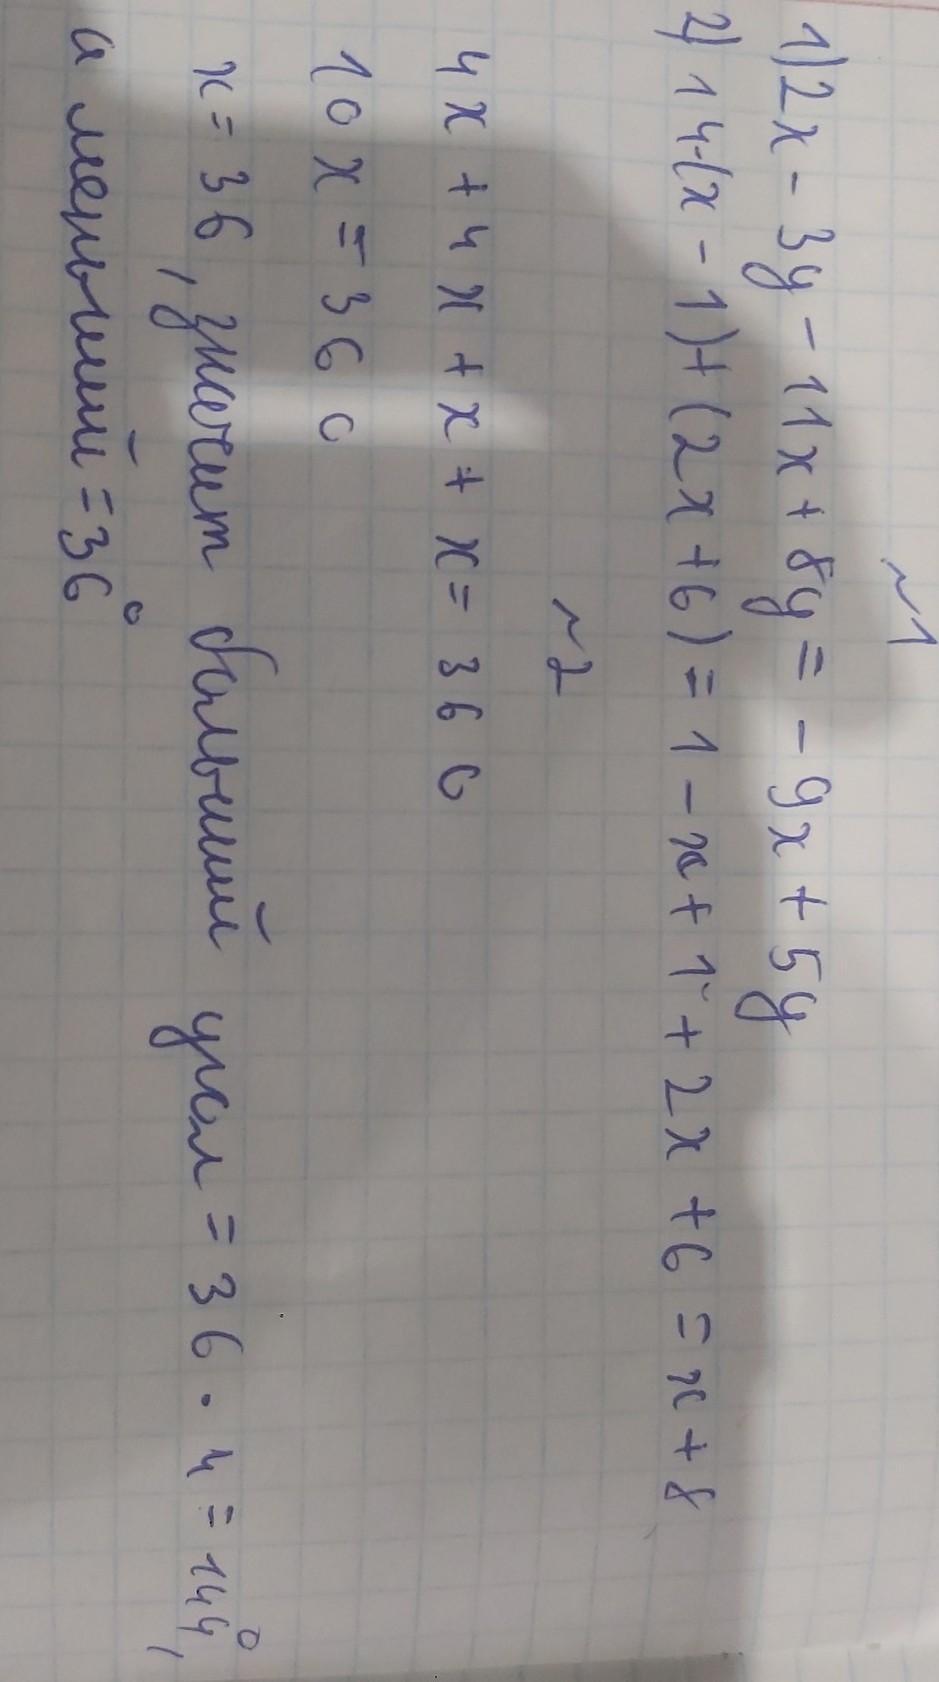 ~1
1) 2x - 3y - 11x + 8y = - 9x + 5y
2) 14-(x - 1)+(2x+6) = 1 - x + 1 + 2x + 6 = x + 8
~2
4x + 4x + x + x = 360
10x = 360
x = 36, значит больший угол = 36 · 4 = 144°,
а меньший = 36°